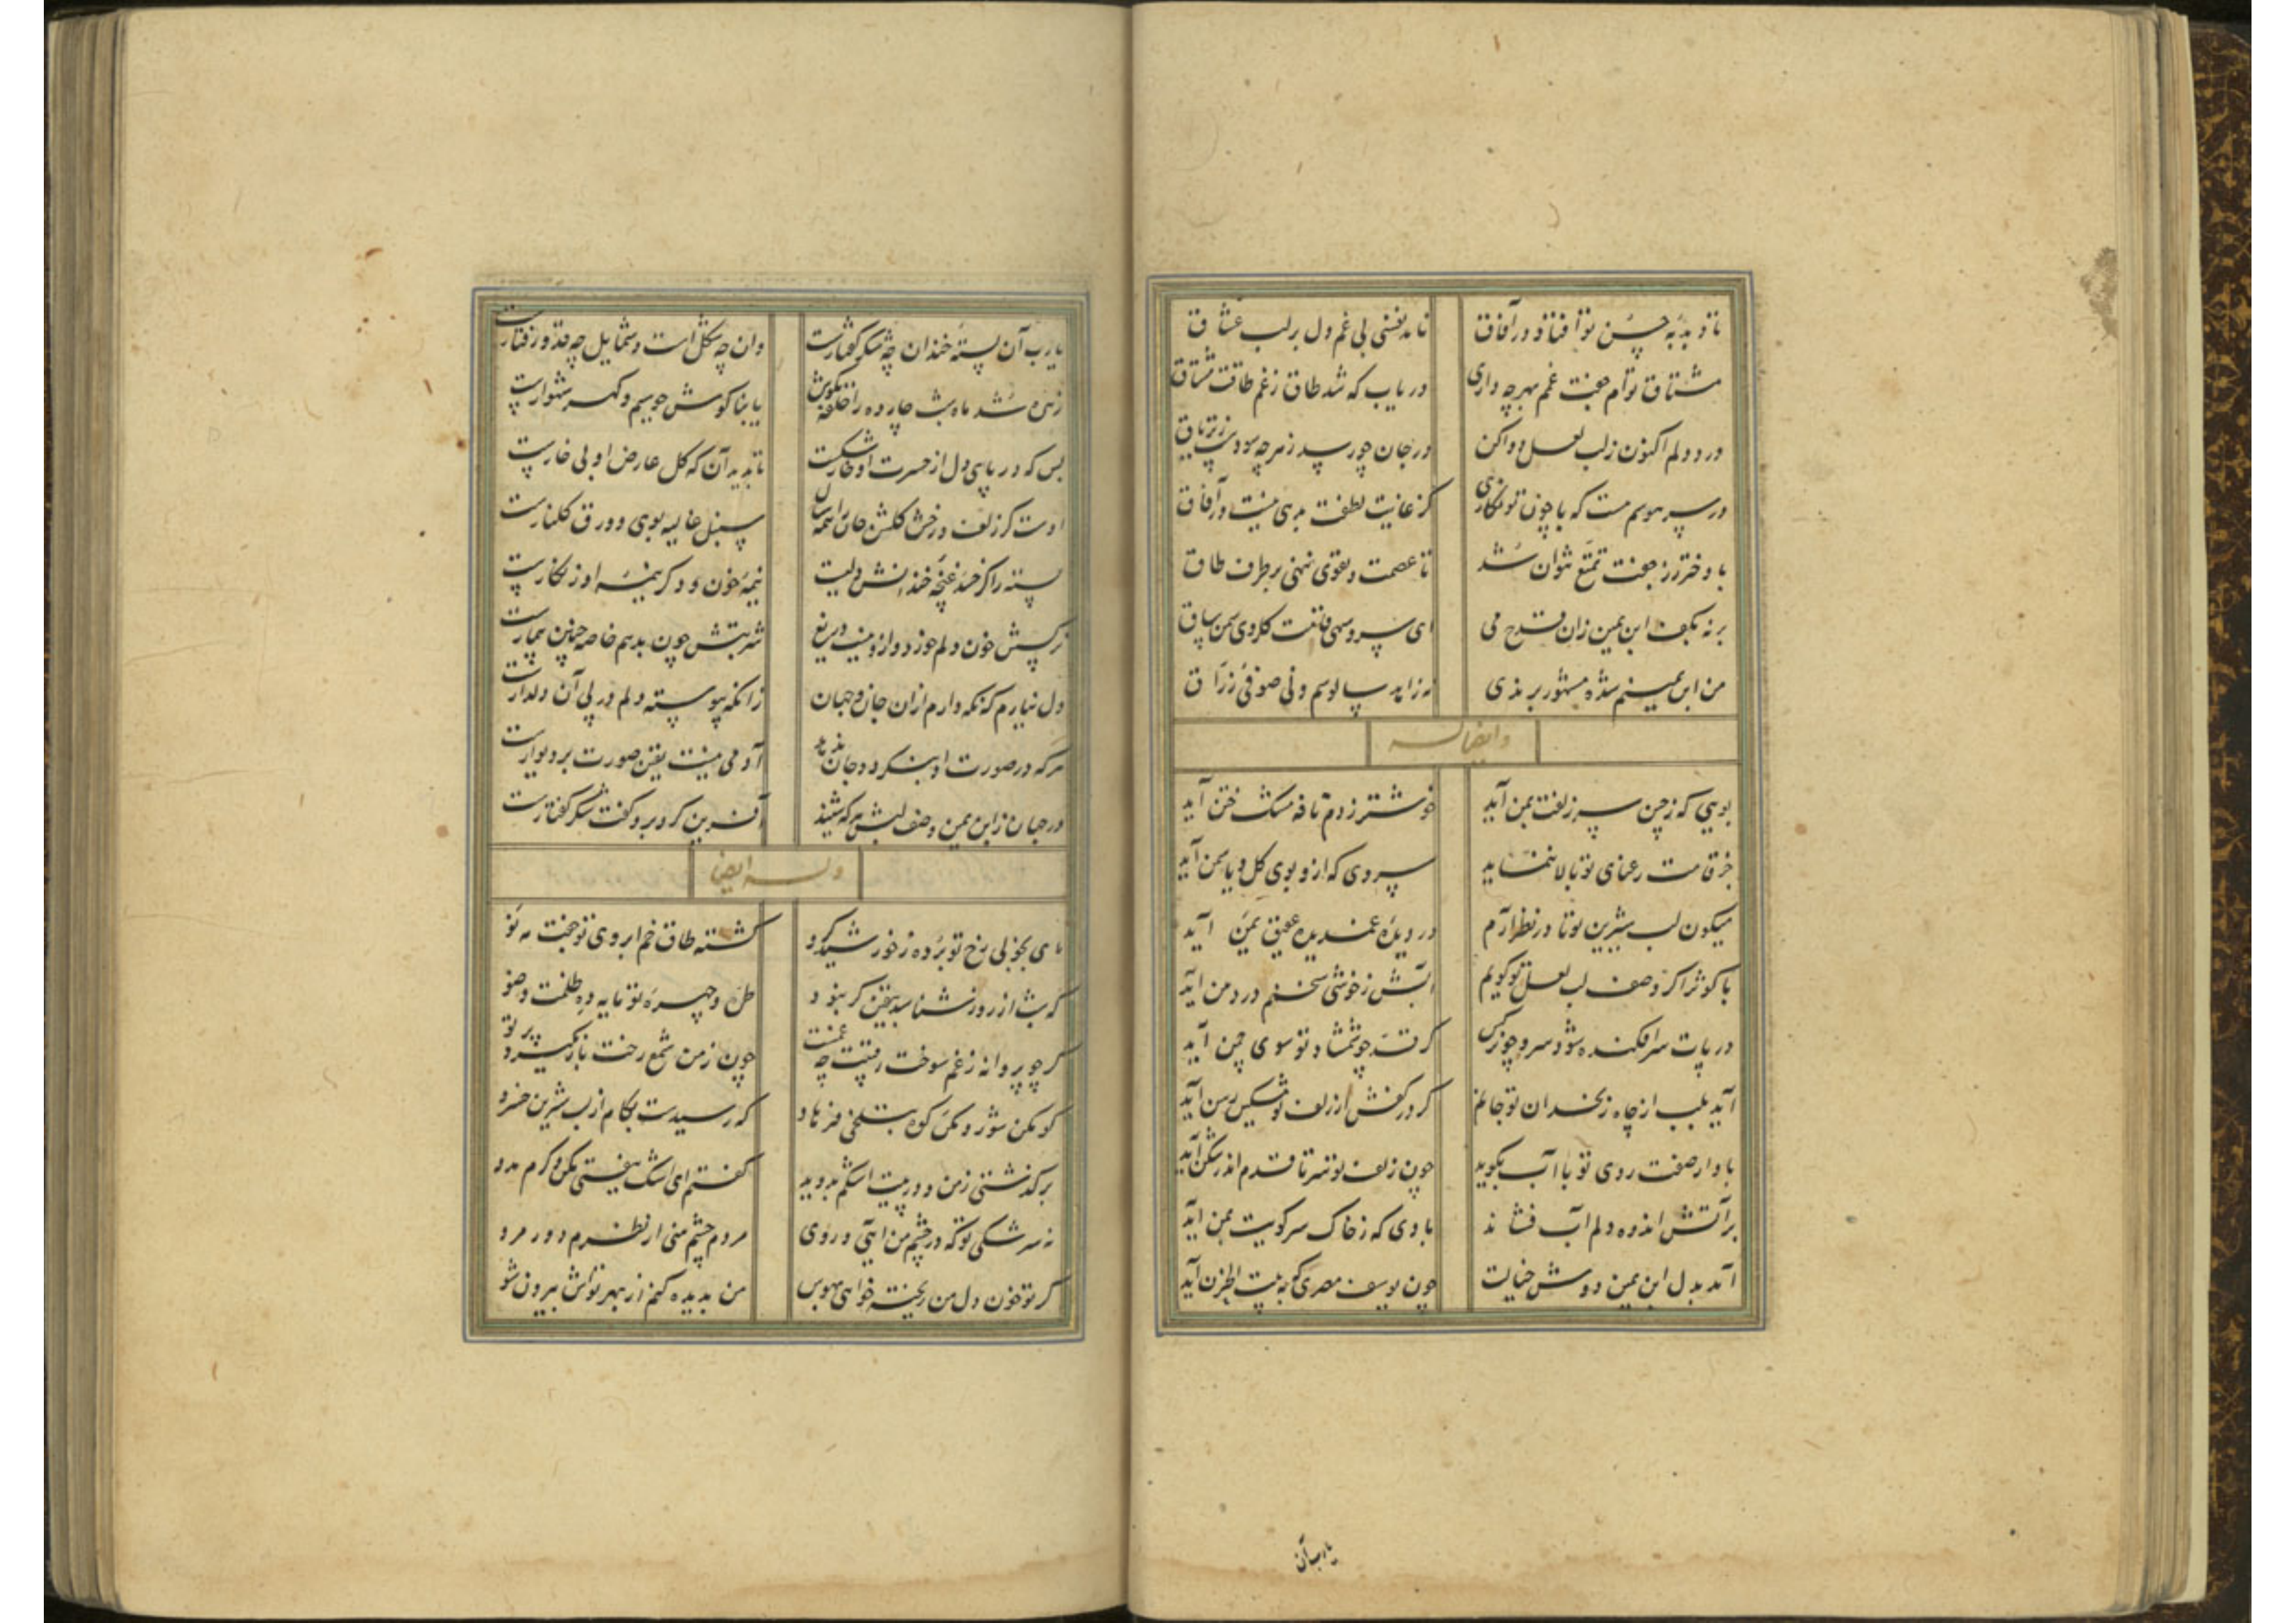 تا دبدبه حسن تو افتاد در آفاق
نامد نفسی بی غم دل بر لب عشاق
مشتاق توام جفت غم بهر چه داری
دریاب که شد طاق ز غم طاقت مشتاق
درد دلم اکنون ز لب لعل دوا کن
در جان چو رسد زهر چه سودست ز تریاق
در سر هوسم هست که با چون تو نگاری
کز غایت لطفت بدی نیست در آفاق
با دختر رز جفت تمتع نتوان شد
تا عصمت و تقوی ننهی بر طرف طاق
بر نه بکف ابن یمین زان قدح می
ای سرو سهی قامت گلروی سمن ساق
من ابن یمینم شده مشهور برندی
نه زاهد سالوسم و نی صوفی زراق
وایضا له
بویی که ز چین سر زلفت بمن آید
خوشتر ز دم نافه مشک ختن آید
جز قامت رعنای تو بالا ننماید
سروی که ازو بوی گل و یاسمن آید
میگون لب شیرین تو تا در نظر آرم
در دیده غمدیده عقیق یمن آید
با کوثر اگر وصف لب لعل تو گویم
آبش ز خوشی سخنم در دهن آید
در پات سر افکنده شود سرو چو نرگس
گر قد چو شمشاد تو سوی چمن آید
آید بلب از چاه زنخدان تو جانم
گر در کفش از زلف تو مشکین رسن آید
باد ار صفت روی تو با آب بگوید
چون زلف تو سر تا قدم اندر شکن آید
بر آتش اندوه دلم آب فشاند
بادی که ز خاک سر کویت بمن آید
آمد بدل ابن یمین دوش خیالت
چون یوسف مصری که به بیت الحزن آید
یارب آن
یارب آن پسته خندان چه شکر گفتارست
وان چه شکل است و شمایل چه قد و رفتارست
زهره شد ماه شب چارده را حلقه بگوش
یا بناگوش چو سیم و گهر شهوارست
بس که در پای دل از حسرت او خار شکست
تا بدید آن که گل عارض او بی خارست
اوست کز زلف و رخش گلشن جان را همه سال
سنبل غالیه بوی و ورق گلنارست
پسته را گر نه حسد غنچه خندانش دلیست
نیمه خون و دگر نیمه او زنگارست
نرگسش خون دلم خورد و ازو نیست دریغ
شربتش چون بدهم خاصه چنین بیمارست
دل نیارم که نگه دارم از آن جان و جهان
زانکه پیوسته دلم در پی آن دلدارست
هر که در صورت او بنگرد و جان ندهد
آدمی نیست یقین صورت بر دیوارست
در جهان ز ابن یمین وصف لبش هر که شنید
آفرین کرد برو گفت شکر گفتارست
وله ایضا
ای بخوبی رخ تو برده ز خورشید گرو
گشته طاق خم ابروی تو جفت مه نو
که شب از روز شناسد بیقین گر نبود
طره و چهره تو مایه ده ظلمت و ضو
گر چو پروانه ز غم سوخت رقیبت چه غمست
چون ز من شمع رخت باز نگیرد پرتو
کوهکن شور و مکن کوه بتلخی فرهاد
که رسیدست بکام از لب شیرین خسرو
برگذشتی ز من و در پیت اشکم بدوید
گفتم ای اشک بیفتی مکن و گرم مدو
نه سرشکی تو که در چشم من آیی و روی
مردم چشم منی از نظرم دور مرو
گر تو خون دل من ریخته خواهی بهوس
من بدیده کنم از بهر تواش بیرون شو